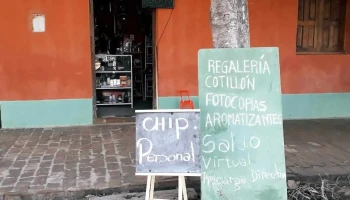 CHIP
Personal
REGALERÍA
COTILLÓN
FOTOCOPIAS
AROMATIZANTES
Saldo
Virtual